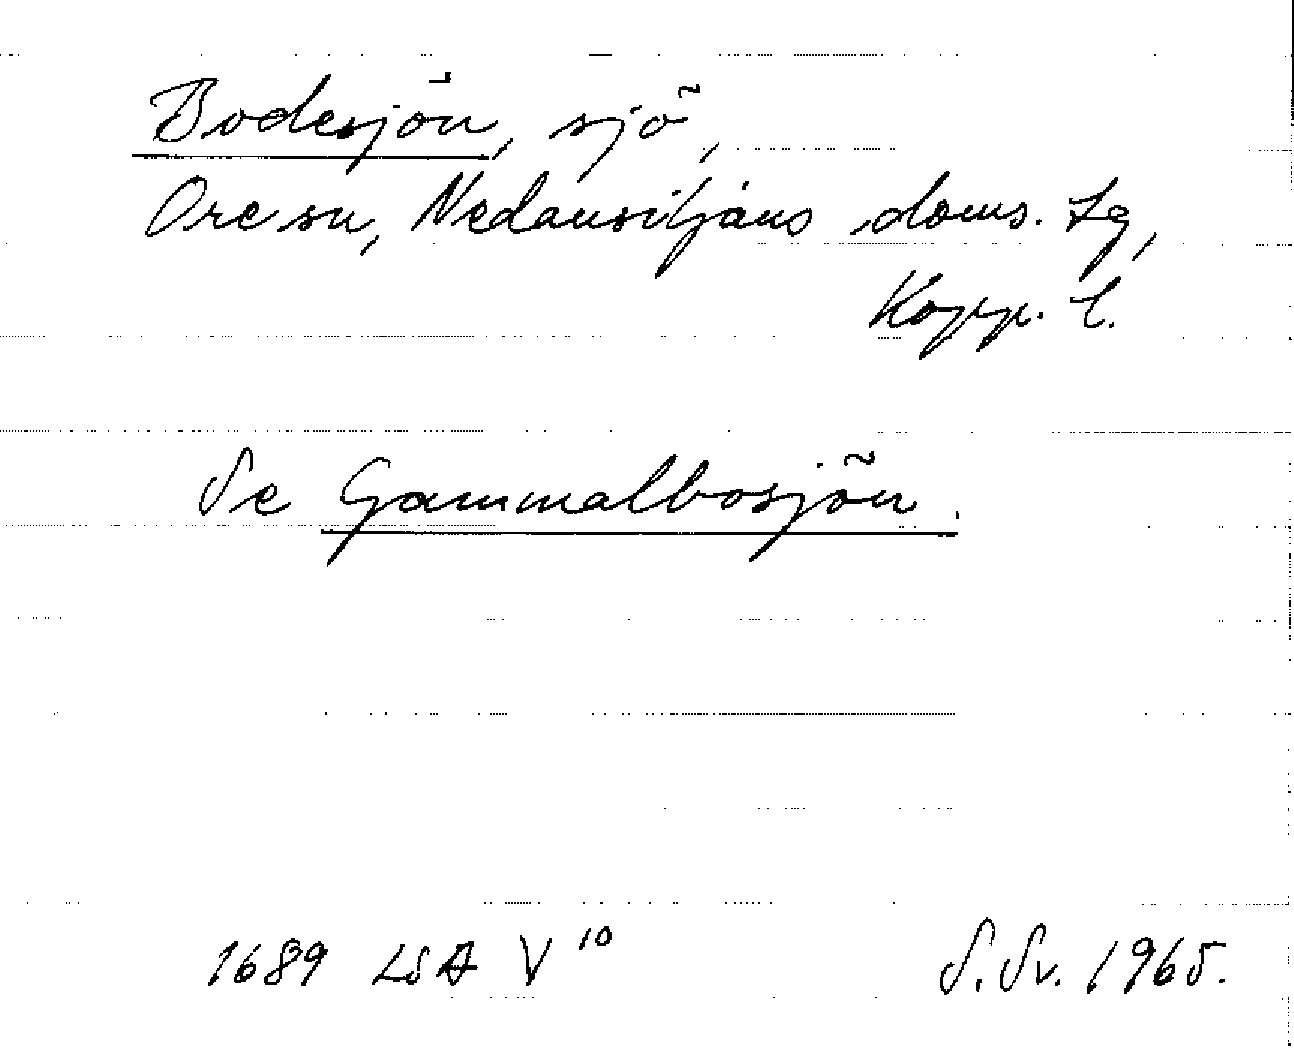 Bodesjön, sjö,
Ore sn, Nedansiljans doms. Lg,
Kopp. l.
Se Gammalbosjön.
1689 LSA V 10
S. Sv. 1965.